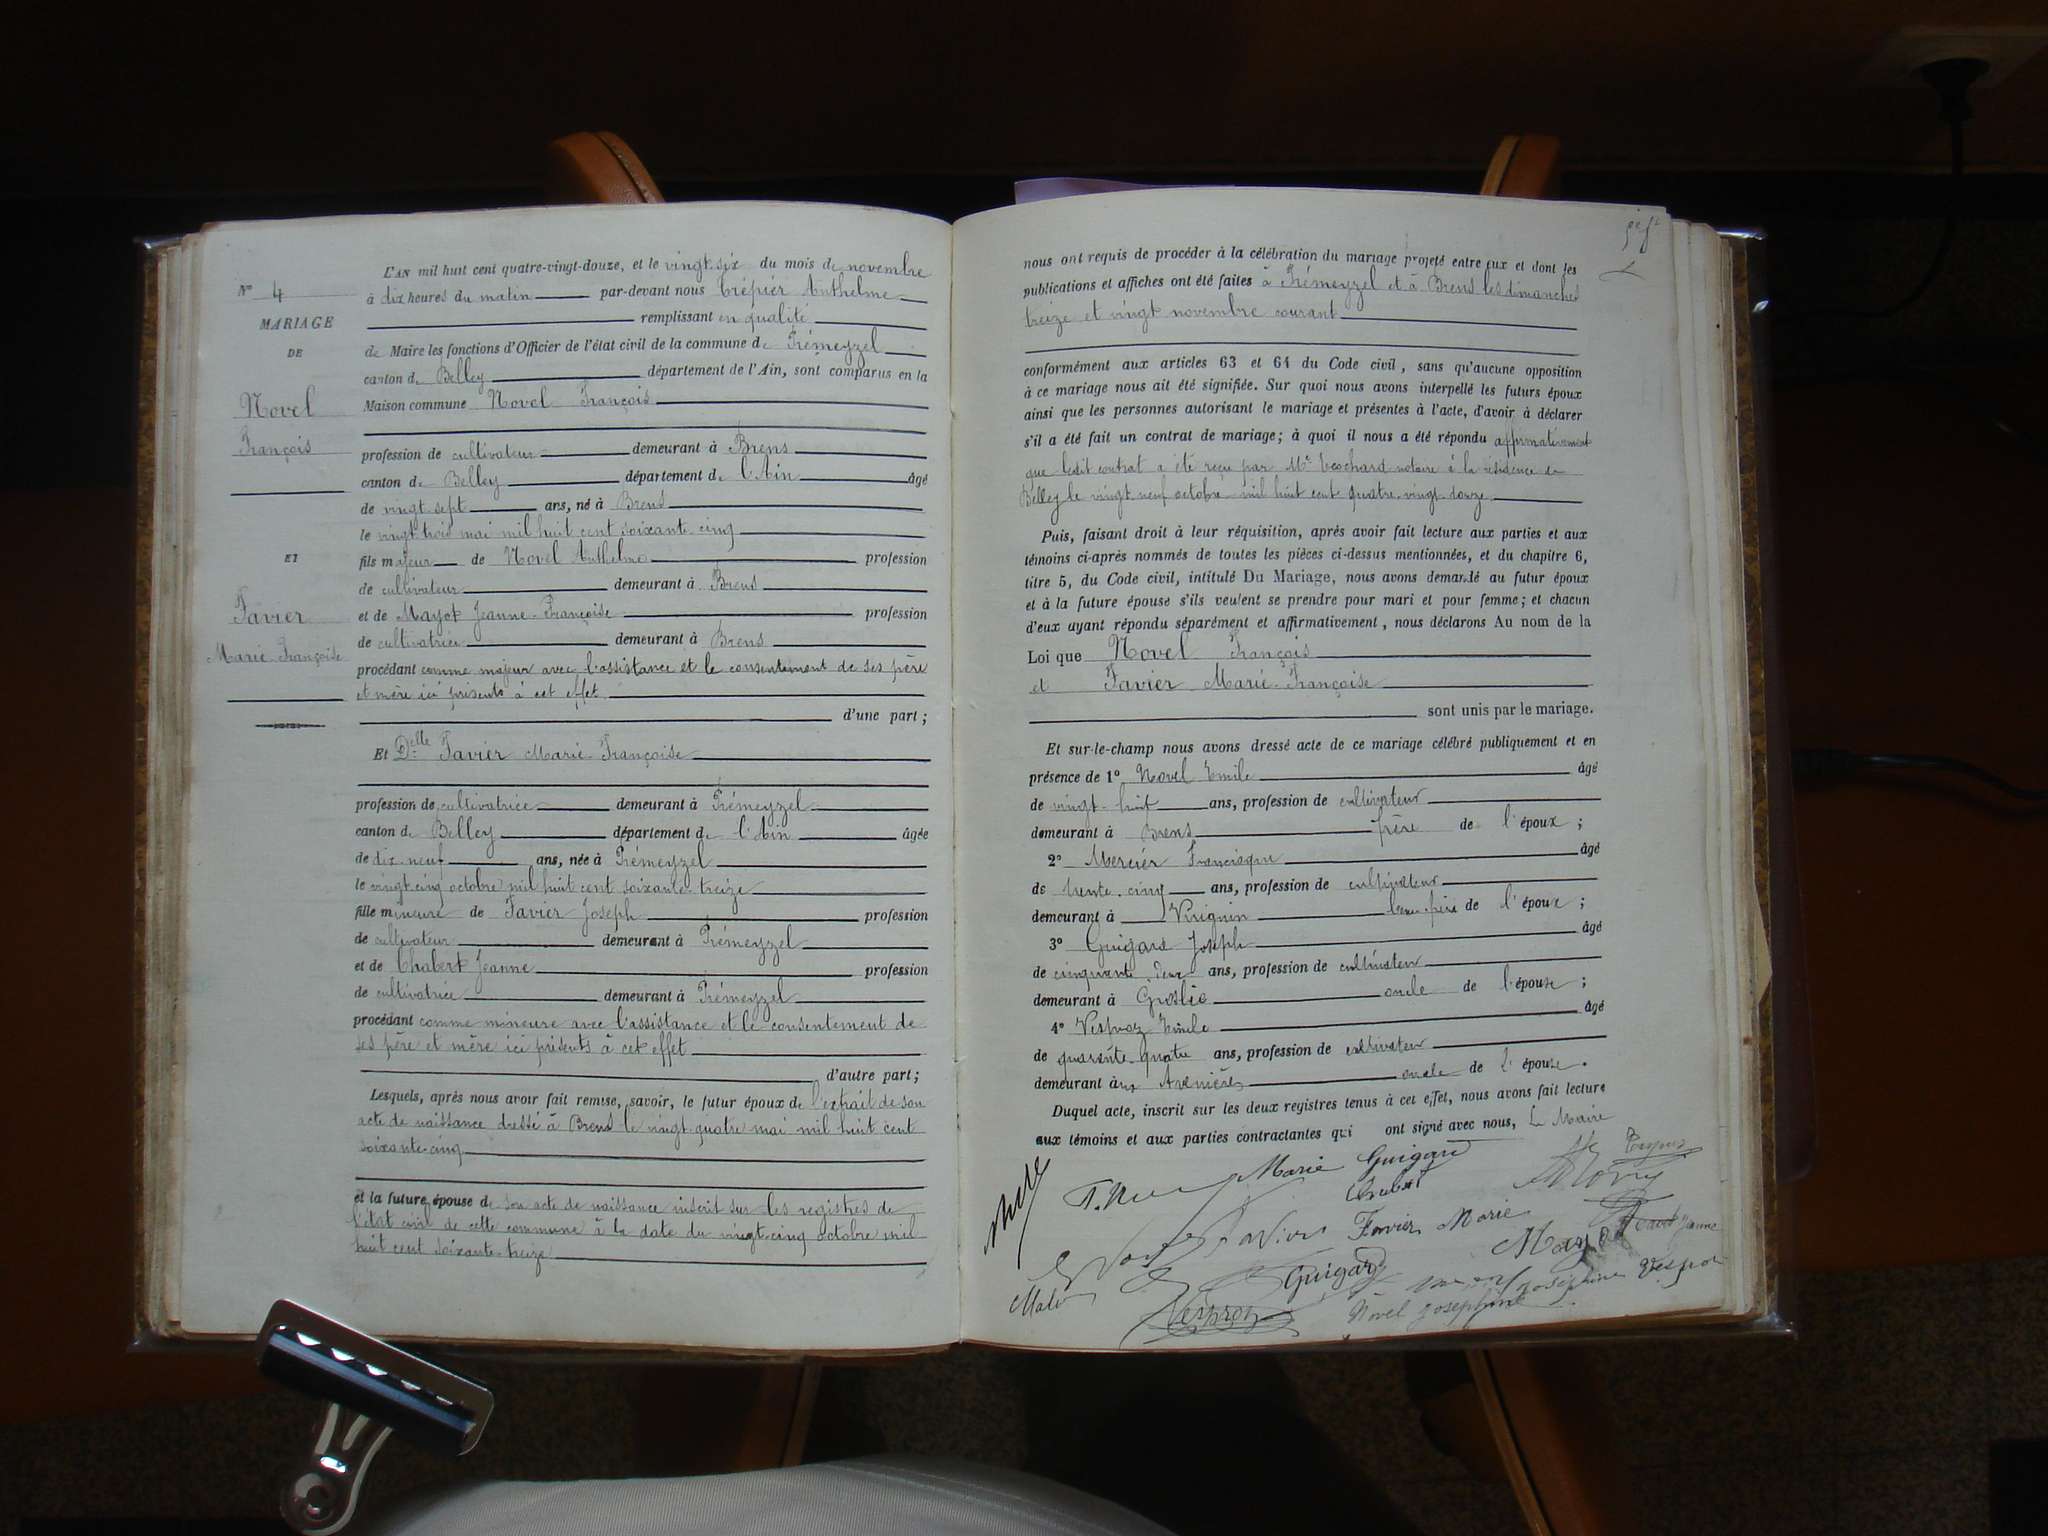 L'AN mil huit cent quatre-vingt-douze, et le vingt-six du mois de novembre
N° 4
à dix heures du matin par-devant nous Crépier Anthelme
MARIAGE
remplissant en qualité
DE
de Maire les fonctions d'Officier de l'état civil de la commune de Prémeyzel
canton de Belley département de l'Ain, sont comparus en la
Novel
Maison commune Novel François
François
profession de cultivateur demeurant à Brens
canton de Belley département de l'Ain âgé
de vingt-sept ans, né à Brens
le vingt trois mai mil huit cent soixante-cinq
ET
fils majeur de Novel Anthelme profession
de cultivateur demeurant à Brens
Favier
et de Mayot Jeanne-Françoise profession
de cultivatrice demeurant à Brens
Marie-Françoise
procédant comme majeur avec l'assistance et le consentement de ses père
et mère ici présents à cet effet
d'une part ;
Et Delle Favier Marie-Françoise
profession de cultivatrice demeurant à Prémeyzel
canton de Belley département de l'Ain âgée
de dix-neuf ans, née à Prémeyzel
le vingt-cinq octobre mil huit cent soixante-treize
fille mineure de Favier Joseph profession
de cultivateur demeurant à Prémeyzel
et de Chabert Jeanne profession
de cultivatrice demeurant à Prémeyzel
procédant comme mineure avec l'assistance et le consentement de
ses père et mère ici présents à cet effet
d'autre part ;
Lesquels, après nous avoir fait remise, savoir, le futur époux de l'extrait de son
acte de naissance dressé à Brens le vingt-quatre mai mil huit cent
soixante-cinq
et la future épouse de son acte de naissance inscrit sur les registres de
l'état civil de cette commune à la date du vingt-cinq octobre mil
huit cent soixante-treize
nous ont requis de procéder à la célébration du mariage projeté entre eux et dont les
publications et affiches ont été faites à Prémeyzel et à Brens les dimanches
treize et vingt novembre courant
conformément aux articles 63 et 64 du Code civil, sans qu'aucune opposition
à ce mariage nous ait été signifiée. Sur quoi nous avons interpellé les futurs époux
ainsi que les personnes autorisant le mariage et présentes à l'acte, d'avoir à déclarer
s'il a été fait un contrat de mariage ; à quoi il nous a été répondu affirmativement
que ledit contrat a été reçu par Me notaire à la résidence de
Belley le vingt-neuf octobre mil huit cent quatre-vingt-douze
Puis, faisant droit à leur réquisition, après avoir fait lecture aux parties et aux
témoins ci-après nommés de toutes les pièces ci-dessus mentionnées, et du chapitre 6,
titre 5, du Code civil, intitulé Du Mariage, nous avons demandé au futur époux
et à la future épouse s'ils veulent se prendre pour mari et pour femme ; et chacun
d'eux ayant répondu séparément et affirmativement, nous déclarons Au nom de la
Loi que Novel François
et Favier Marie-Françoise
sont unis par le mariage.
Et sur-le-champ nous avons dressé acte de ce mariage célébré publiquement et en
présence de 1° Novel Emile âgé
de vingt-huit ans, profession de cultivateur
demeurant à Brens frère de l'époux ;
2° Mercier Francisque âgé
de trente-cinq ans, profession de cultivateur
demeurant à Virignin beau-frère de l'époux ;
3° Guigard Joseph âgé
de cinquante-deux ans, profession de cultivateur
demeurant à Groslée oncle de l'épouse ;
4° Vesproz Emile âgé
de quarante-quatre ans, profession de cultivateur
demeurant aux Avenières oncle de l'épouse.
Duquel acte, inscrit sur les deux registres tenus à cet effet, nous avons fait lecture
aux témoins et aux parties contractantes qui ont signé avec nous, Le Maire
Marie Guigard
Chabert
Favier Marie
Guigard
Mayot
Josephine Vesproz
Vesproz
Novel Josephine